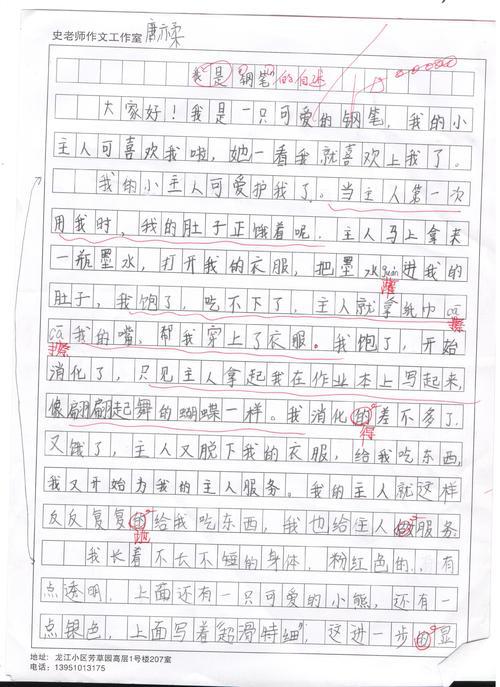 史老师作文工作室 唐亦柔
我是"钢笔"的自述
大家好！我是一只可爱的钢笔，我的小
主人可喜欢我啦，她一看我就喜欢上我了。
我的小主人可爱护我了。当主人第一次
用我时，我的肚子正饿着呢，主人马上拿来
一瓶墨水，打开我的衣服，把墨水guàn进我的
灌
肚子，我饱了，吃不下了，主人就拿纸巾cā
擦
cā我的嘴，帮我穿上了衣服。我饱了，开始
擦
消化了，只见主人拿起我在作业本上写起来，
像翩翩起舞的蝴蝶一样。我消化的差不多了，
得
又饿了，主人又脱下我的衣服，给我吃东西，
我又开始为我的主人服务。我的主人就这样
反反复复的给我吃东西，我也给主人做服务
地
我长着不长不短的身体，粉红色的，有
点透明，上面还有一只可爱的小熊，还有一
点银色，上面写着"超滑特细"，这进一步的显
地址：龙江小区芳草园高层1号楼207室
电话：13951013175